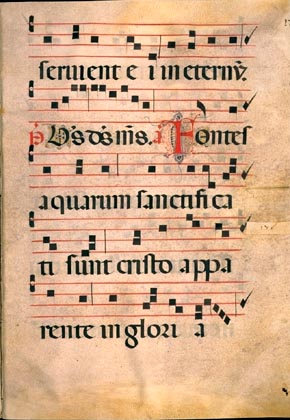 seruient e i in eternũ.
p̃s Ds ds m̃s. a Fontes
aquarum sanctifica
ti sunt cristo appa
rente in glori a